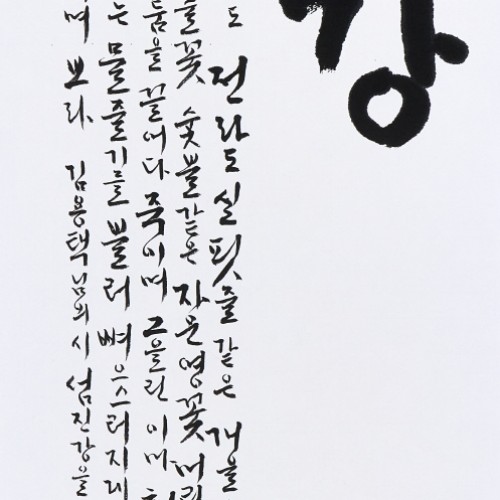 강
도 전라도 실핏줄 같은 개울
풀꽃 숯불 같은 자운영꽃 머리
둠을 끌어다 죽이며 그을린 이마
는 물줄기를 불러 뼈 으스러지게
며 보라. 김용택님의 시 섬진강을